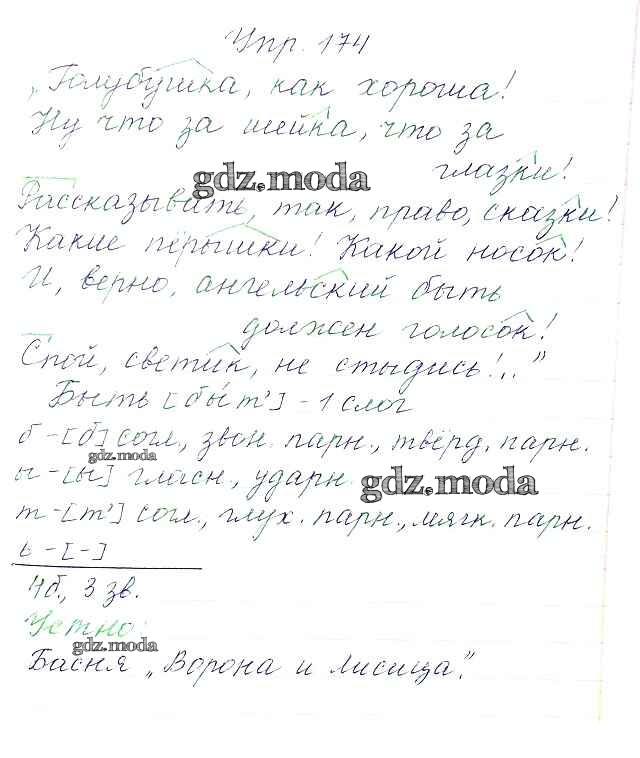 Упр. 174
„Голубушка, как хороша!
Ну что за шейка, что за
глазки!
gdz.moda
Рассказывать, так, право, сказки!
Какие пёрышки! Какой носок!
И, верно, ангельский быть
должен голосок!
Спой, светик, не стыдись!.."
Быть [бы́т'] - 1 слог
б - [б] согл., звон. парн., твёрд. парн.
gdz.moda
ы - [ы] гласн., ударн
gdz.moda
т - [т'] согл., глух. парн., мягк. парн.
ь - [-]
4б., 3 зв.
Устно:
gdz.moda
Басня „Ворона и Лисица".